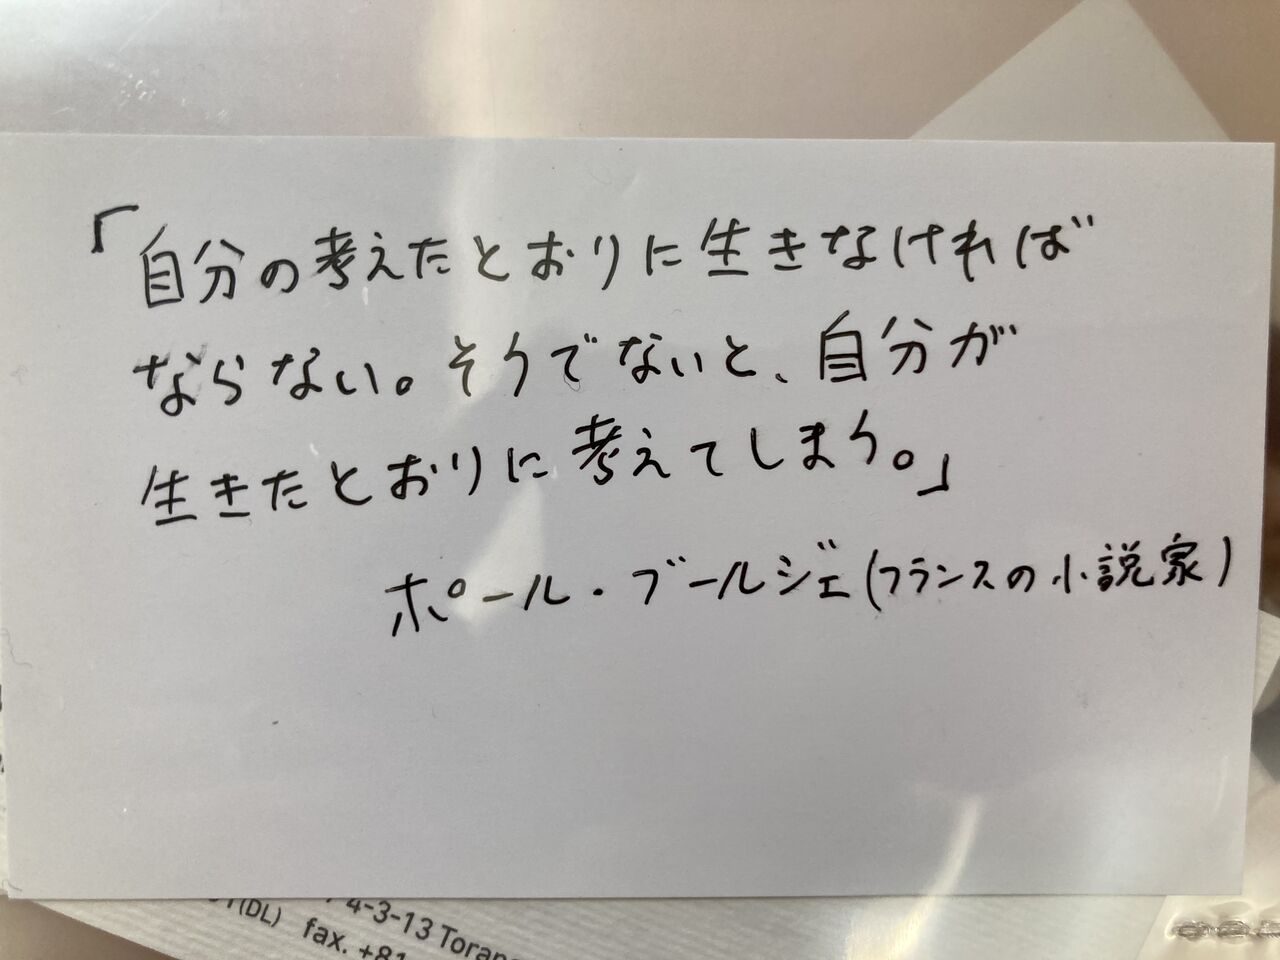 「自分の考えたとおりに生きなければ
ならない。そうでないと、自分が
生きたとおりに考えてしまう。」
ポール・ブールジェ(フランスの小説家)
4-3-13 Toran
(DL) fax. +81